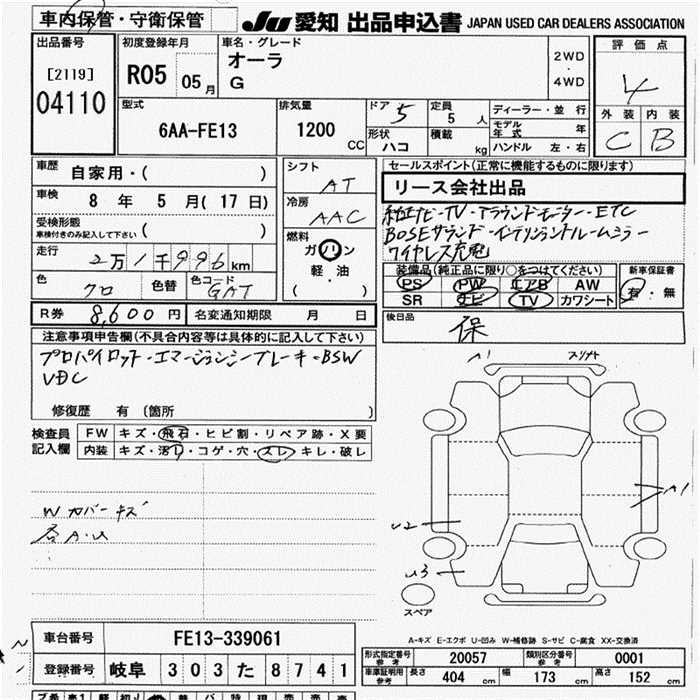 車内保管・守衛保管
JU 愛知 出品申込書 JAPAN USED CAR DEALERS ASSOCIATION
出品番号
[2119]
04110
初度登録年月
R05 05月
車名・グレード
オーラ
G
2WD
・
4WD
評価点
4
外装 内装
C B
型式
6AA-FE13
排気量
1200
CC
ドア 5
定員 5 人
形状 ハコ
積載 kg
ディーラー・並行
モデル年式 年
ハンドル 左・右
車歴 自家用・( )
車検 8 年 5 月 (17 日)
受検形態
車検付きのみ記入して下さい ( )
走行 2万1千996km
色 クロ
色替
色コード GAT
シフト AT
冷房 AAC
燃料
ガソリン
軽・油
( )
セールスポイント(正常に機能するものに限ります)
リース会社出品
純正ナビ・TV・アラウンドモニター・ETC
BOSEサウンド・インテリジェントルームミラー
ワイヤレス充電
装備品(純正品に限り○をつけてください)
PS PW エアB AW
SR ナビ TV カワシート
新車保証書
有・無
R券 8,600円
名変通知期限 月 日
後日品
保
注意事項申告欄(不具合内容等は具体的に記入して下さい)
プロパイロット・エマージェンシーブレーキ・BSW
VDC
修復歴 有(箇所 )
検査員記入欄
FW キズ・飛石・ヒビ割・リペア跡・X要
内装 キズ・汚れ・コゲ・穴・スレ・キレ・破レ
Wカバーキズ
各A・U
A1
A1
U2
U3
スペア
A-キズ E-エクボ U-凹み W-補修跡 S-サビ C-腐食 XX-交換済
車台番号 FE13-339061
登録番号 岐阜 303 た 8741
形式指定番号 参考 20057
類別区分番号 参考 0001
車庫証明用 参考 長さ 404 cm 幅 173 cm 高さ 152 cm